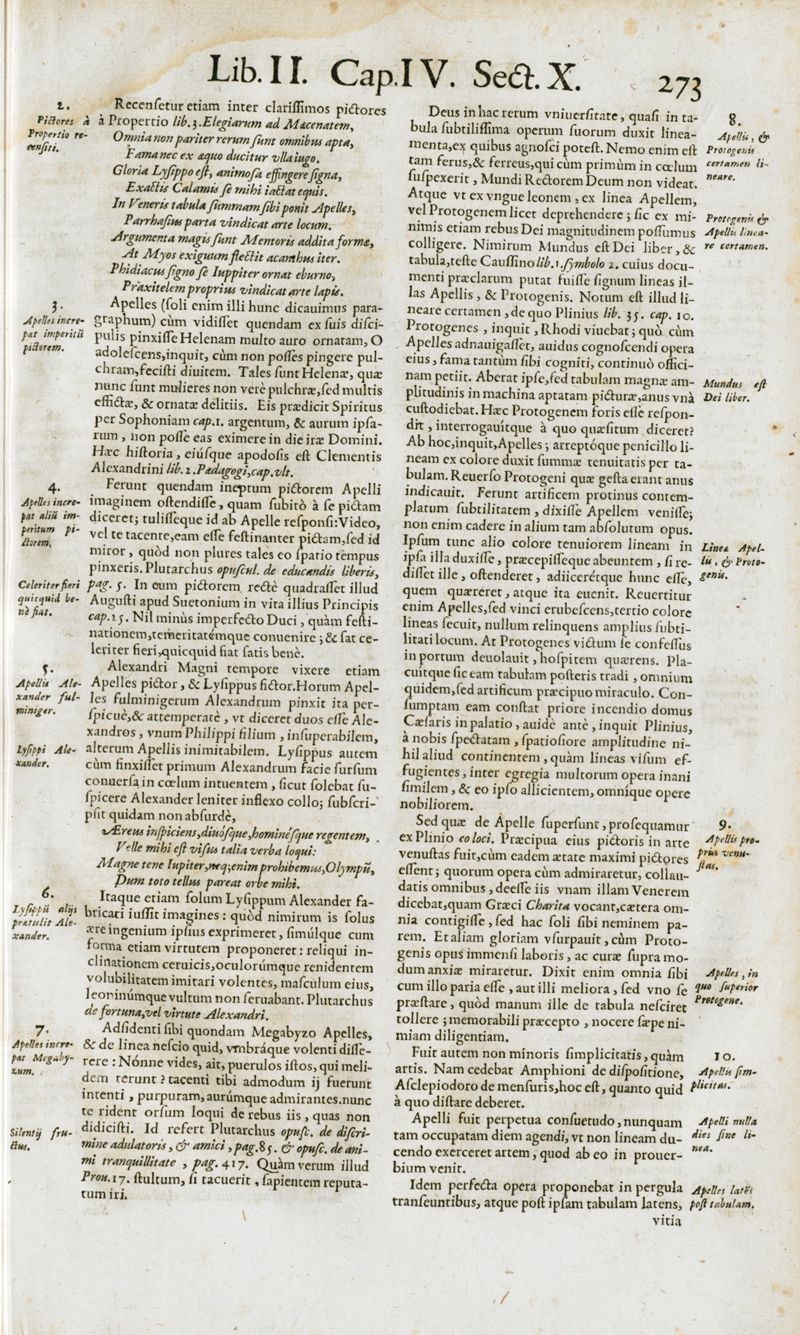 Lib. II. Cap. IV. Sect. X. 273
2.
Pictores à
Propertio re-
censiti.
Recenſetur etiam inter clariſſimos pictores
à Propertio lib. 3. Elegiarum ad Mæcenatem,
Omnia non pariter rerum ſunt omnibus apta,
Fama nec ex æquo ducitur vlla iugo.
Gloria Lyſippo eſt, animoſa effingere ſigna,
Exactis Calamis ſe mihi iactat equis.
In Veneris tabula ſummam ſibi ponit Apelles,
Parrhaſius parta vindicat arte locum.
Argumenta magis ſunt Mentoris addita formæ,
At Myos exiguum flectit acanthus iter.
Phidiacus ſigno ſe Iuppiter ornat eburno,
Praxitelem proprius vindicat arte lapis.
3.
Apelles incre-
pat imperitū
pictorem.
Apelles (ſoli enim illi hunc dicauimus para-
graphum) cùm vidiſſet quendam ex ſuis diſci-
pulis pinxiſſe Helenam multo auro ornatam, O
adoleſcens, inquit, cùm non poſſes pingere pul-
chram, feciſti diuitem. Tales ſunt Helenæ, quæ
nunc ſunt mulieres non verè pulchræ, ſed multis
effictæ, & ornatæ delitiis. Eis prædicit Spiritus
per Sophoniam cap. 1. argentum, & aurum ipſa-
rum, non poſſe eas eximere in die iræ Domini.
Hæc hiſtoria, eiúſque apodoſis eſt Clementis
Alexandrini lib. 2. Pædagogi, cap. vlt.
4.
Apelles incre-
pat aliū im-
peritum pi-
ctorem,
Ferunt quendam ineptum pictorem Apelli
imaginem oſtendiſſe, quam ſubitò à ſe pictam
diceret; tuliſſeque id ab Apelle reſponſi: Video,
vel te tacente, eam eſſe feſtinanter pictam, ſed id
miror, quòd non plures tales eo ſpatio tempus
pinxeris. Plutarchus opuſcul. de educandis liberis,
Celeriter fieri
quicquid be-
nè fiat.
pag. 5. In eum pictorem rectè quadraſſet illud
Auguſti apud Suetonium in vita illius Principis
cap. 25. Nil minùs imperfecto Duci, quàm feſti-
nationem, temeritatémque conuenire; & ſat ce-
leriter fieri, quicquid fiat ſatis benè.
5.
Apellis Ale-
xander ful-
miniger.
Alexandri Magni tempore vixere etiam
Apelles pictor, & Lyſippus fictor. Horum Apel-
les fulminigerum Alexandrum pinxit ita per-
ſpicuè, & attemperatè, vt diceret duos eſſe Ale-
xandros, vnum Philippi filium, inſuperabilem,
Lysippi Ale-
xander.
alterum Apellis inimitabilem. Lyſippus autem
cùm finxiſſet primum Alexandrum facie ſurſum
conuerſa in cœlum intuentem, ſicut ſolebat ſu-
ſpicere Alexander leniter inflexo collo; ſubſcri-
pſit quidam non abſurdè,
Æreus inſpiciens, diuóſque, hominéſque regentem,
Velle mihi eſt viſus talia verba loqui:
Magne tene Iupiter, neq; enim prohibemus, Olympū,
Dum toto tellus pareat orbe mihi.
6.
Lysippū alijs
prætulit Ale-
xander.
Itaque etiam ſolum Lyſippum Alexander fa-
bricari iuſſit imagines: quòd nimirum is ſolus
ære ingenium ipſius exprimeret, ſimúlque cum
forma etiam virtutem proponeret: reliqui in-
clinationem ceruicis, oculorúmque renidentem
volubilitatem imitari volentes, maſculum eius,
leorinúmque vultum non ſeruabant. Plutarchus
de fortuna, vel virtute Alexandri.
7.
Apelles incre-
pat Megaby-
zum.
Adſidenti ſibi quondam Megabyzo Apelles,
& de linea neſcio quid, vmbráque volenti diſſe-
rere: Nónne vides, ait, puerulos iſtos, qui meli-
dem terunt? tacenti tibi admodum ij fuerunt
intenti, purpuram, aurúmque admirantes. nunc
te rident orſum loqui de rebus iis, quas non
Silentij fru-
ctus.
didiciſti. Id refert Plutarchus opuſc. de diſcri-
mine adulatoris, & amici, pag. 85. & opuſc. de ani-
mi tranquillitate, pag. 417. Quàm verum illud
Prou. 17. ſtultum, ſi tacuerit, ſapientem reputa-
tum iri.
8.
Apellis, &
Protogenis
certamen li-
neare.
Deus in hac rerum vniuerſitate, quaſi in ta-
bula ſubtiliſſima operum ſuorum duxit linea-
menta, ex quibus agnoſci poteſt. Nemo enim eſt
tam ferus, & ferreus, qui cùm primùm in cœlum
ſuſpexerit, Mundi Rectorem Deum non videat.
Atque vt ex vngue leonem, ex linea Apellem,
vel Protogenem licet deprehendere; ſic ex mi-
Protogenis &
Apellis linea-
re certamen.
nimis etiam rebus Dei magnitudinem poſſumus
colligere. Nimirum Mundus eſt Dei liber, &
tabula, teſte Cauſſino lib. 1. ſymbolo 2. cuius docu-
menti præclarum putat fuiſſe ſignum lineas il-
las Apellis, & Protogenis. Notum eſt illud li-
neare certamen, de quo Plinius lib. 35. cap. 10.
Protogenes, inquit, Rhodi viuebat; quò cùm
Apelles adnauigaſſet, auidus cognoſcendi opera
eius, fama tantùm ſibi cogniti, continuò offici-
nam petiit. Aberat ipſe, ſed tabulam magnæ am-
Mundus eſt
Dei liber.
plitudinis in machina aptatam picturæ, anus vnà
cuſtodiebat. Hæc Protogenem foris eſſe reſpon-
dit, interrogauítque à quo quæſitum diceret?
Ab hoc, inquit, Apelles; arreptóque penicillo li-
neam ex colore duxit ſummæ tenuitatis per ta-
bulam. Reuerſo Protogeni quæ geſta erant anus
indicauit. Ferunt artificem protinus contem-
platum ſubtilitatem, dixiſſe Apellem veniſſe;
non enim cadere in alium tam abſolutum opus.
Ipſum tunc alio colore tenuiorem lineam in
Linea Apel-
lis, & Proto-
genis.
ipſa illa duxiſſe, præcepiſſeque abeuntem, ſi re-
diſſet ille, oſtenderet, adiiceretque hunc eſſe,
quem quæreret, atque ita euenit. Reuertitur
enim Apelles, ſed vinci erubeſcens, tertio colore
lineas ſecuit, nullum relinquens amplius ſubti-
litati locum. At Protogenes victum ſe confeſſus
in portum deuolauit, hoſpitem quærens. Pla-
cuitque ſic eam tabulam poſteris tradi, omnium
quidem, ſed artificum præcipuo miraculo. Con-
ſumptam eam conſtat priore incendio domus
Cæſaris in palatio, auidè antè, inquit Plinius,
à nobis ſpectatam, ſpatioſiore amplitudine ni-
hil aliud continentem, quàm lineas viſum ef-
fugientes, inter egregia multorum opera inani
ſimilem, & eo ipſo allicientem, omníque opere
nobiliorem.
9.
Apellis pro-
pria venu-
ſtas.
Sed quæ de Apelle ſuperſunt, proſequamur
ex Plinio eo loci. Præcipua eius pictoris in arte
venuſtas fuit, cùm eadem ætate maximi pictores
eſſent; quorum opera cùm admiraretur, collau-
datis omnibus, deeſſe iis vnam illam Venerem
dicebat, quam Græci Charita vocant, cætera om-
nia contigiſſe, ſed hac ſoli ſibi neminem pa-
rem. Et aliam gloriam vſurpauit, cùm Proto-
genis opus immenſi laboris, ac curæ ſupra mo-
dum anxiæ miraretur. Dixit enim omnia ſibi
Apelles, in
quo ſuperior
Protogene.
cum illo paria eſſe, aut illi meliora, ſed vno ſe
præſtare, quòd manum ille de tabula neſciret
tollere; memorabili præcepto, nocere ſæpe ni-
miam diligentiam.
10.
Apellis ſim-
plicitas.
Fuit autem non minoris ſimplicitatis, quàm
artis. Nam cedebat Amphioni de diſpoſitione,
Aſclepiodoro de menſuris, hoc eſt, quanto quid
à quo diſtare deberet.
Apelli nulla
dies ſine li-
nea.
Apelli fuit perpetua conſuetudo, nunquam
tam occupatam diem agendi, vt non lineam du-
cendo exerceret artem, quod ab eo in prouer-
bium venit.
Apelles latēs
poſt tabulam.
Idem perfecta opera proponebat in pergula
tranſeuntibus, atque poſt ipſam tabulam latens,
vitia